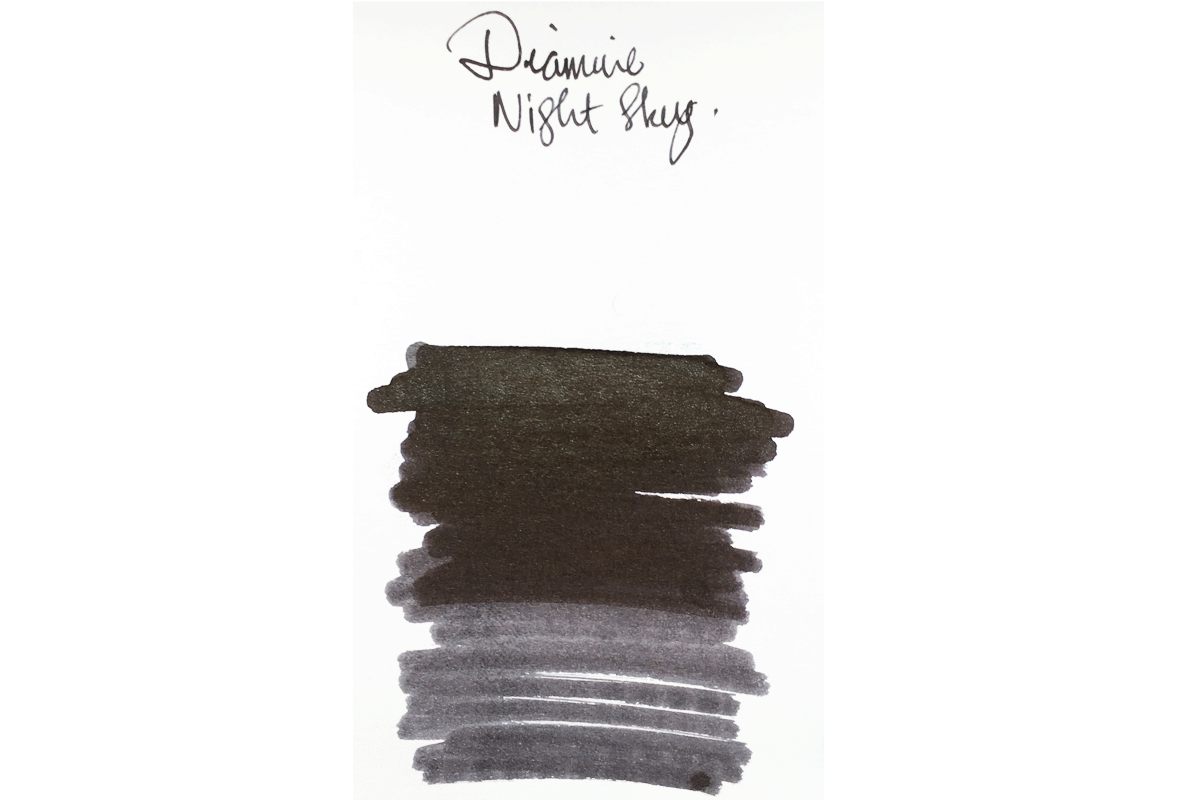 Diamine
Night Sky.